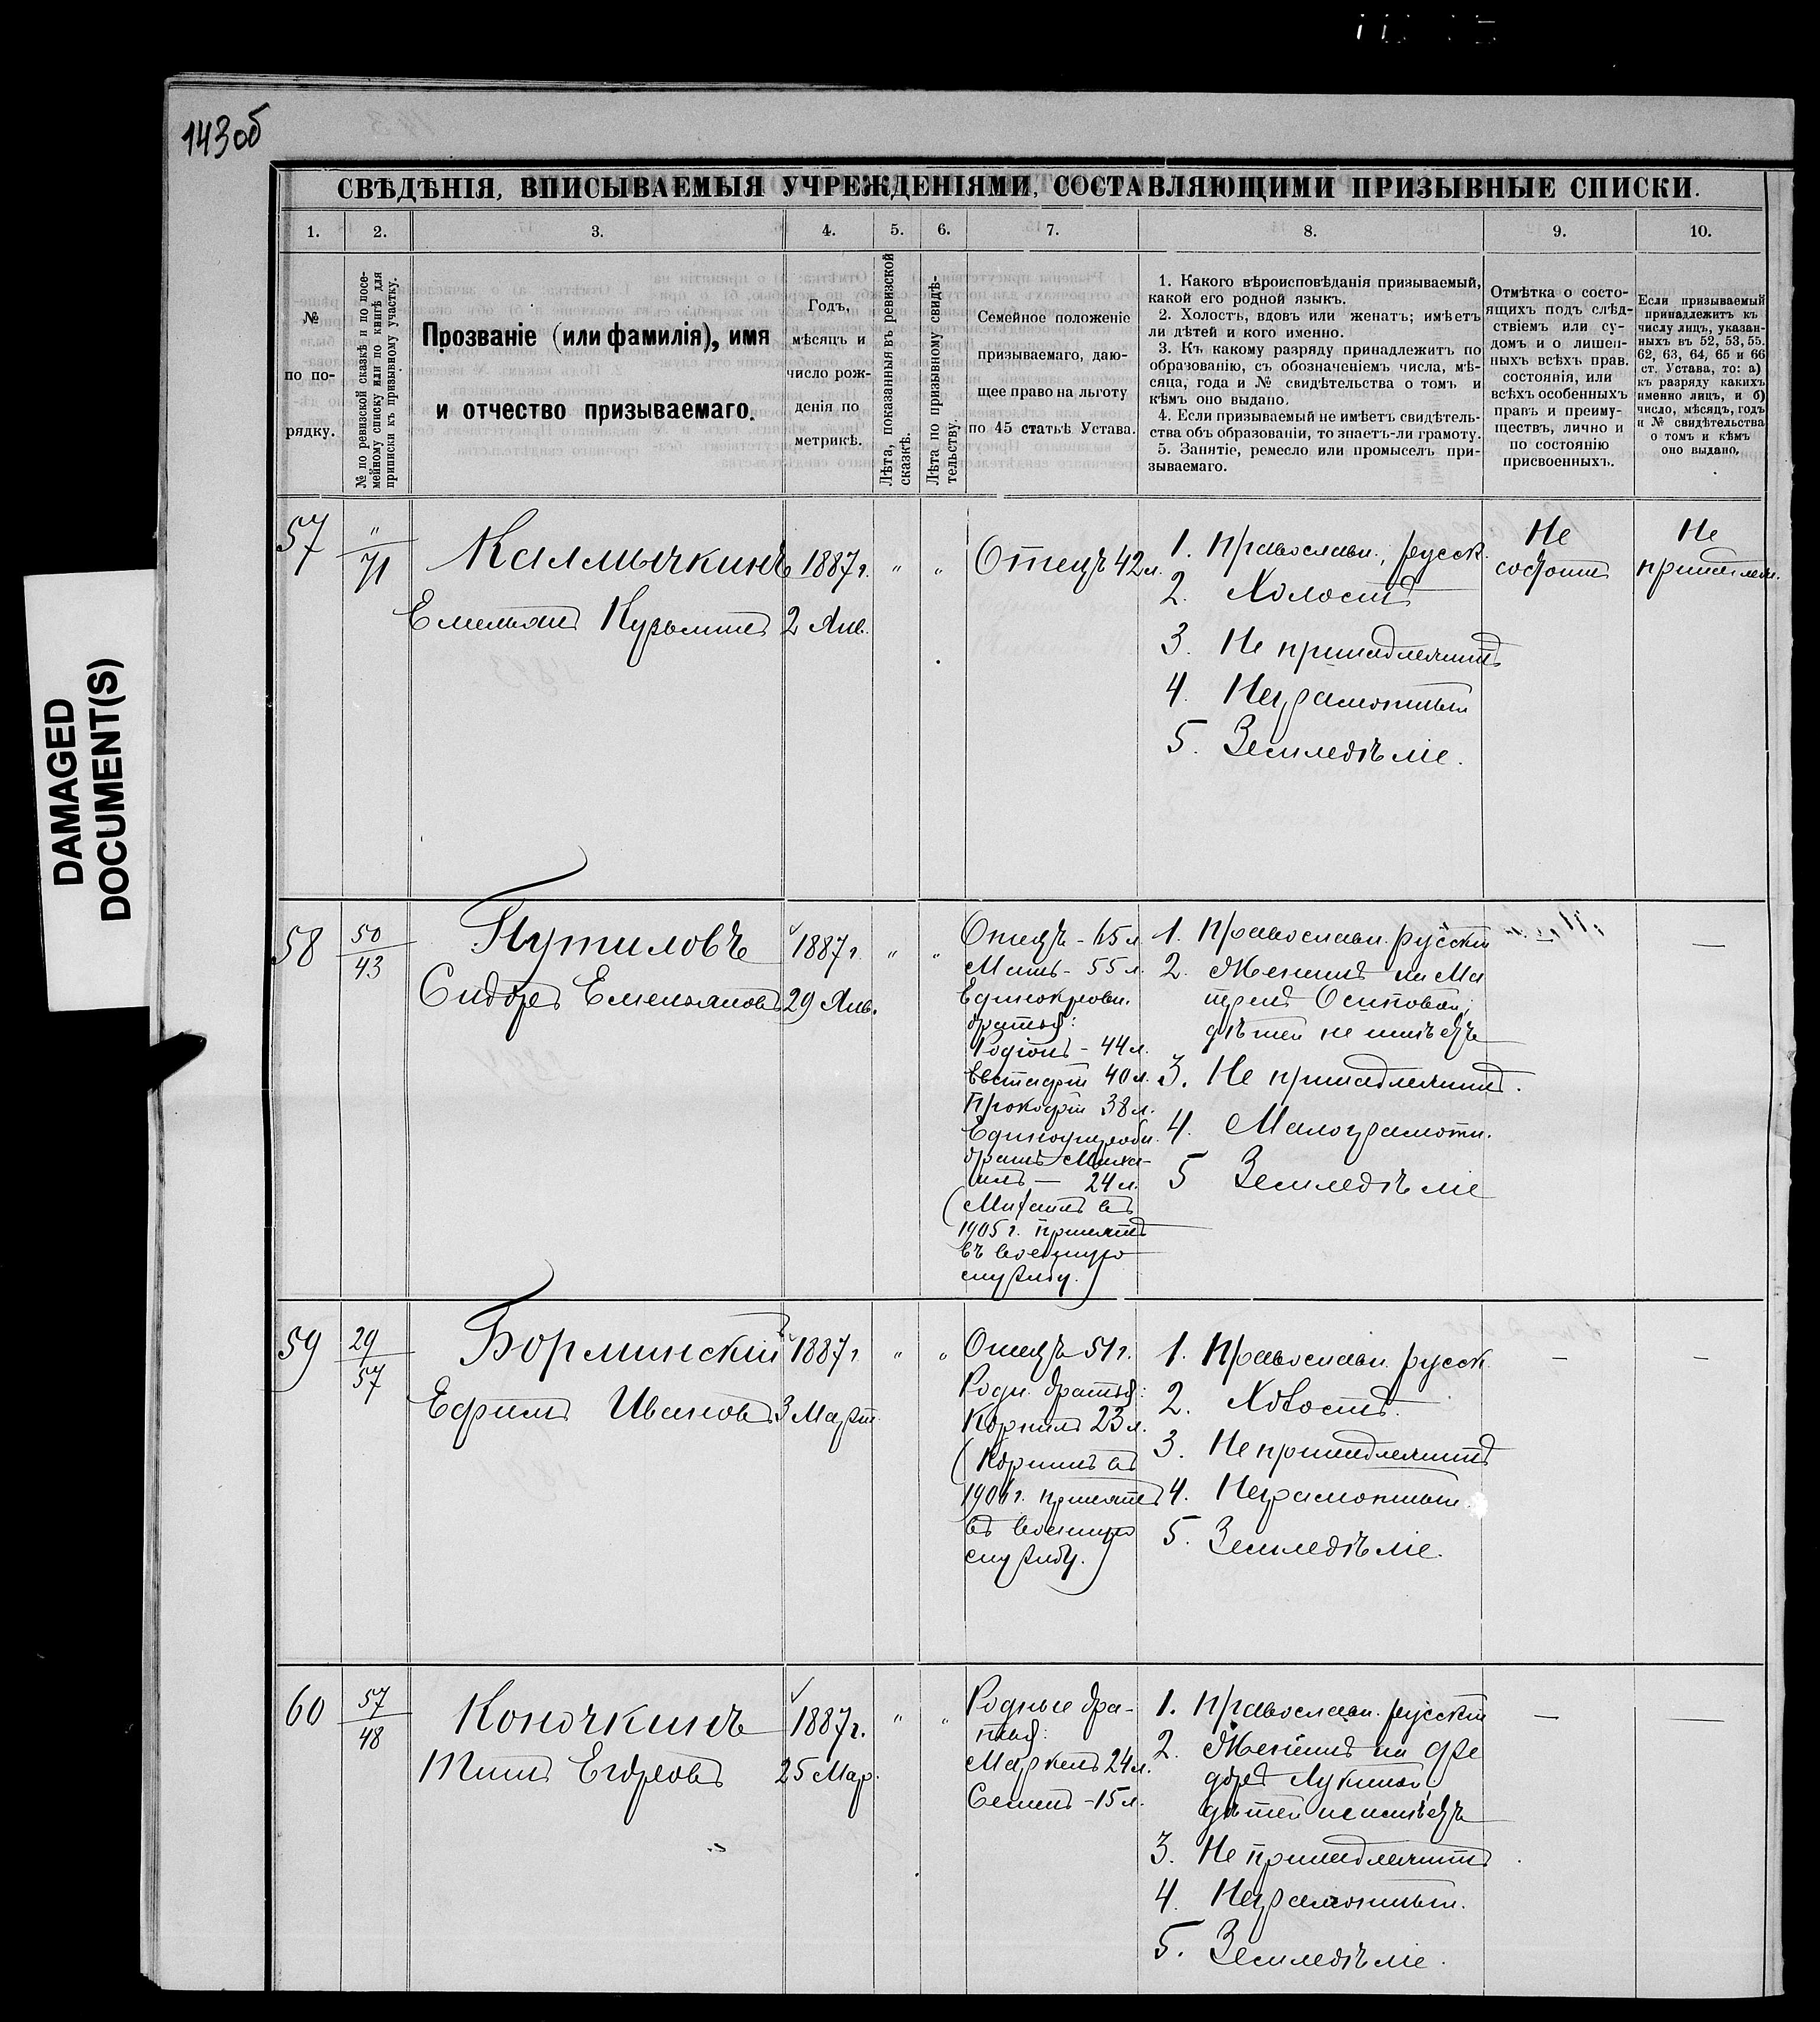 143об
СВѢДѢНІЯ, ВПИСЫВАЕМЫЯ УЧРЕЖДЕНІЯМИ, СОСТАВЛЯЮЩИМИ ПРИЗЫВНЫЕ СПИСКИ.
1. 2. 3. 4. 5. 6. 7. 8. 9. 10.
№
по по-
рядку.
№ по ревизской сказкѣ и по посе-
мейному списку или по книгѣ для
приписки къ призывному участку.
Прозваніе (или фамилія), имя
и отчество призываемаго.
Годъ,
мѣсяцъ и
число рож-
денія по
метрикѣ.
Лѣта, показанныя въ ревизской
сказкѣ.
Лѣта по призывному свидѣ-
тельству.
Семейное положеніе
призываемаго, даю-
щее право на льготу
по 45 статьѣ Устава.
1. Какого вѣроисповѣданія призываемый,
какой его родной языкъ.
2. Холостъ, вдовъ или женатъ; имѣетъ
ли дѣтей и кого именно.
3. Къ какому разряду принадлежитъ по
образованію, съ обозначеніемъ числа, мѣ-
сяца, года и № свидѣтельства о томъ и
кѣмъ оно выдано.
4. Если призываемый не имѣетъ свидѣтель-
ства объ образованіи, то знаетъ-ли грамоту.
5. Занятіе, ремесло или промыселъ при-
зываемаго.
Отмѣтка о состо-
ящихъ подъ слѣд-
ствіемъ или су-
домъ и о лишен-
ныхъ всѣхъ прав.
состоянія, или
всѣхъ особенныхъ
правъ и преиму-
ществъ, лично и
по состоянію
присвоенныхъ.
Если призываемый
принадлежитъ къ
числу лицъ, указан-
ныхъ въ 52, 53, 55.
62, 63, 64, 65 и 66
ст. Устава, то: а)
къ разряду какихъ
именно лицъ, и б)
число, мѣсяцъ, годъ
и № свидѣтельства
о томъ и кѣмъ
оно выдано.
57
"
71
Калмычкинъ
Емельянъ Кузьминъ
1887г.
2 Янв.
"
"
Отецъ 42л.
1. Православн., русск.
2. Холостъ
3. Не принадлежитъ
4. Неграмотный
5. Земледѣліе.
Не
состоитъ
Не
принадлеж.
58
50
43
Путиловъ
Сидоръ Емельяновъ
1887г.
29 Янв.
"
"
Отецъ - 65л
Мать - 55л.
Единокровн.
братья:
Родіонъ - 44л.
Евстафій 40л.
Прокофій 38л.
Единоутробн.
братъ Миха-
илъ — 24л.
(Михаилъ въ
1905г. принятъ
въ военную
службу.)
1. Православн. русскій
2. Женатъ на Ма
тренѣ Осиповой,
дѣтей не имѣетъ
3. Не принадлежитъ.
4. Малограмотн.
5 Земледѣліе
—
59
29
57
Борминскій
Ефимъ Ивановъ
1887г.
3 Март.
"
"
Отецъ 51г.
Родн. братья:
Корнилъ 23л.
(Корнилъ въ
1906г. принятъ
въ военную
службу.)
1. Православн. русск.
2. Холостъ.
3. Не принадлежитъ
4. Неграмотный
5. Земледѣліе.
—
—
60
57
48
Коночкинъ
Титъ Егоровъ
1887г.
25 Мар.
"
"
Родные бра-
тья:
Маркелъ 24л.
Семенъ - 15л.
1. Православн. русскій
2. Женатъ на Фе
дорѣ Лукиной,
дѣтей не имѣетъ
3. Не принадлежитъ.
4. Неграмотный.
5. Земледѣліе.
—
—
DAMAGED
DOCUMENT(S)